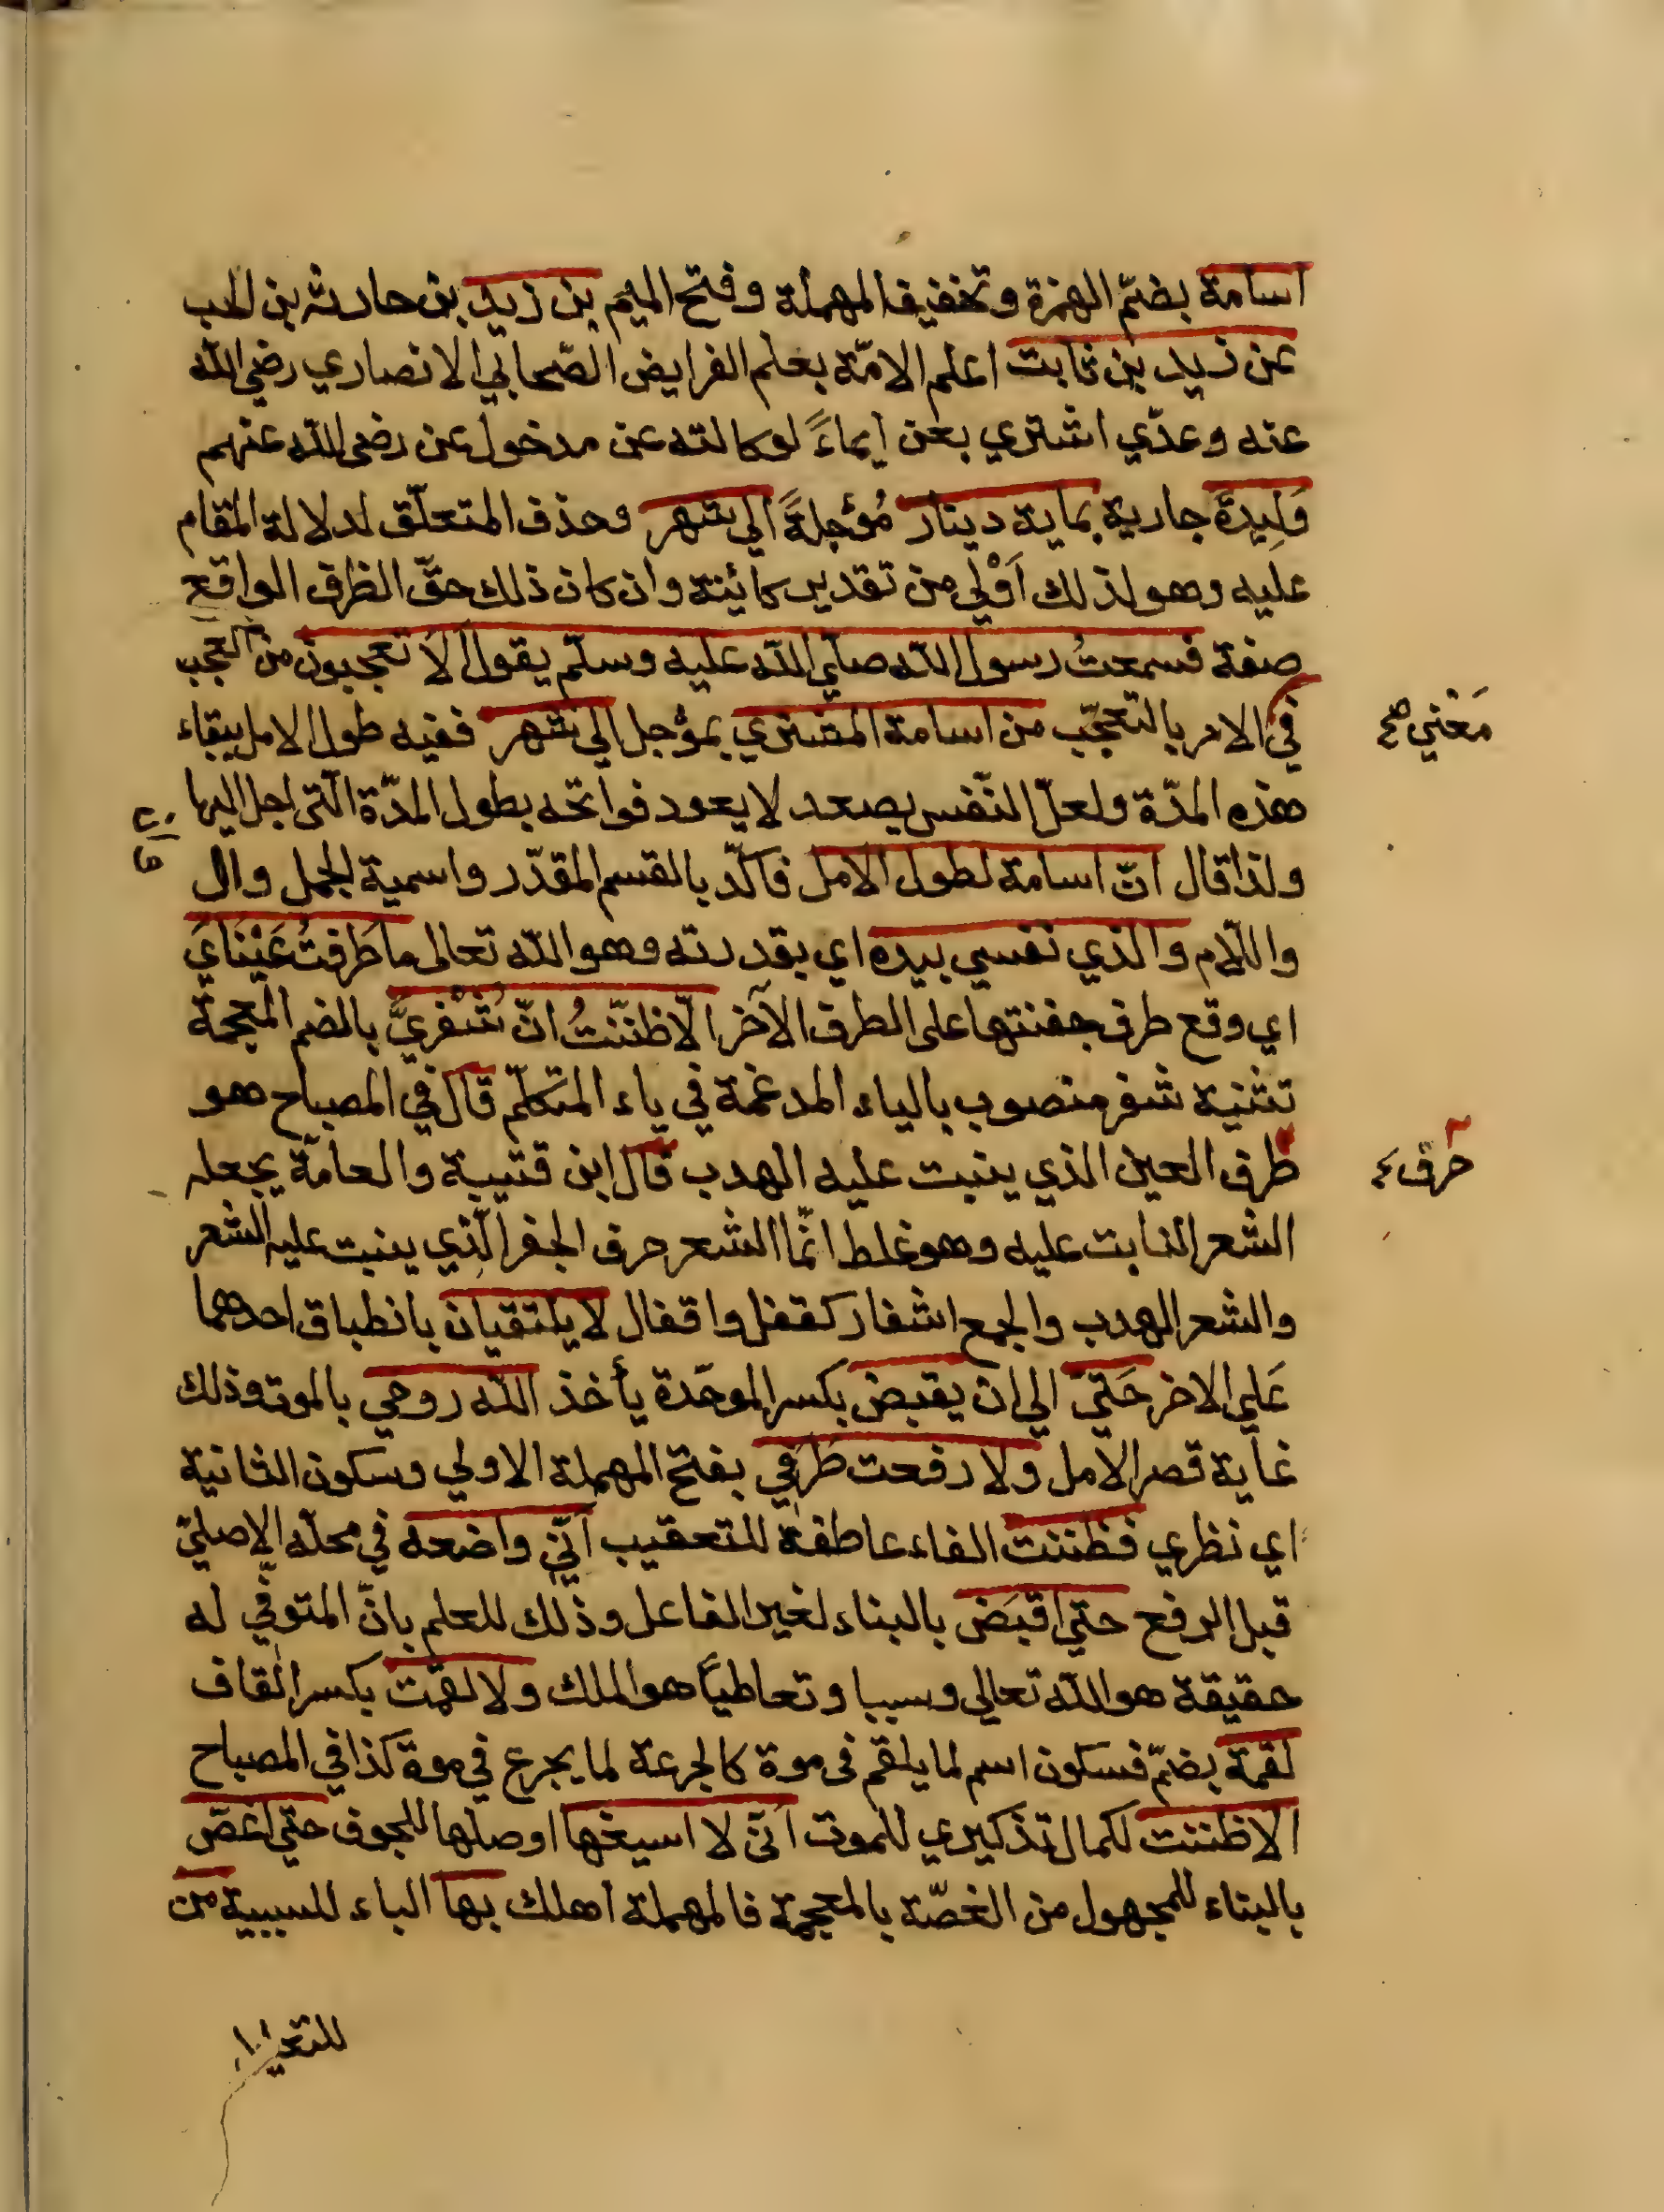 اسامة بضمّ الهمزة وتخفيف المهملة وفتح الميم بن زيد بن حارثة بن الحب
عن زيد بن ثابت اعلم الامّة بعلم الفرايض الصّحابي الانصاري رضي الله
عنه وعدّي اشتري بعن ايماءً لوكالته عن مدخول عن رضي الله عنهم
وَلِيدَةً جارية بماية دينار مُؤجلةً الي شهر وحذف المتعلّق لدلالة المقام
عليه وهو لذلك اَوْلي من تقدير كائنة وان كان ذلك حقّ الظرف الواقع
صفة فسمعتُ رسول الله صلّي الله عليه وسلّم يقول اَلاَ تعجبون من العجب
في الامر بالتعجّب من اسامة المشتري بمؤجل الي شهر ففيه طول الامل ببقاء
مَعْني صح
هذه المدّة ولعلّ النّفس يصعد لا يعود فواتحه بطول المدّة الّتي اجل اليها
ولذا قال انّ اسامة لطول الامل فاكدّ بالقسم المقدّر واسمية الجمل وال
واللّام والذي نفسي بيده اي بقدرته وهو الله تعالى ما طَرفتُ عَيْنَايَ
اي وقع طرف جفنتها على الطرف الآخر الّا ظنّنتُ انّ شُفْريَّ بالضم المعجمة
تثنية شفر منصوب بالياء المدغمة في ياء المتكلّم قال في المصباح هو
طرف العين الذي ينبت عليه الهدب قال ابن قتيبة والعامّة يجعله
حرف
الشعر النابت عليه وهو غلط انّما الشعر حرف الجفر الّذي ينبت عليه الشعر
والشعر الهدب والجمع اشفار كقفل واقفال لا يلتقيان بانطباق احدهما
عَلي الاخر حَتّيَ الي ان يقبض بكسر الموحّدة يأخذ الله روحي بالموت وذلك
غاية قصر الامل ولا رفعت طَرفي بفتح المهملة الاولي وسكون الثانية
اي نظري فظننت الفاء عاطفة للتعقيب انّي واضعه في محلّه الاصليّ
قبل الرفع حتّي اقبَض بالبناء لغير الفاعل وذلك للعلم بانّ المتوفّي له
حقيقة هو الله تعالي وسببا وتعاطيًا هو الملك ولا لقمْت بكسر القاف
لقمة بضمّ فسكون اسم لما يلقم في موة كالجرعة لما يجرع في موة كذا في المصباح
الا ظننت لكمال تذكيري للموت انّي لا اسيغها اوصلها للجوف حتّي اغصّ
بالبناء للمجهول من الغصّة بالمعجمة فالمهملة اهلك بها الباء للسببية من